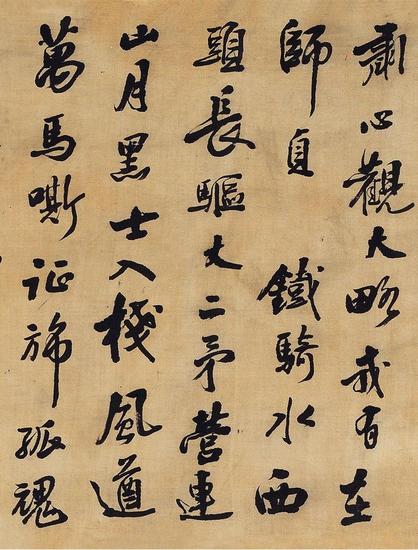 肅心觀大略戒有在
師貞　鐵騎水西
頭長驅丈二矛營連
山月黑士入棧風遒
萬馬嘶征旆孤魂